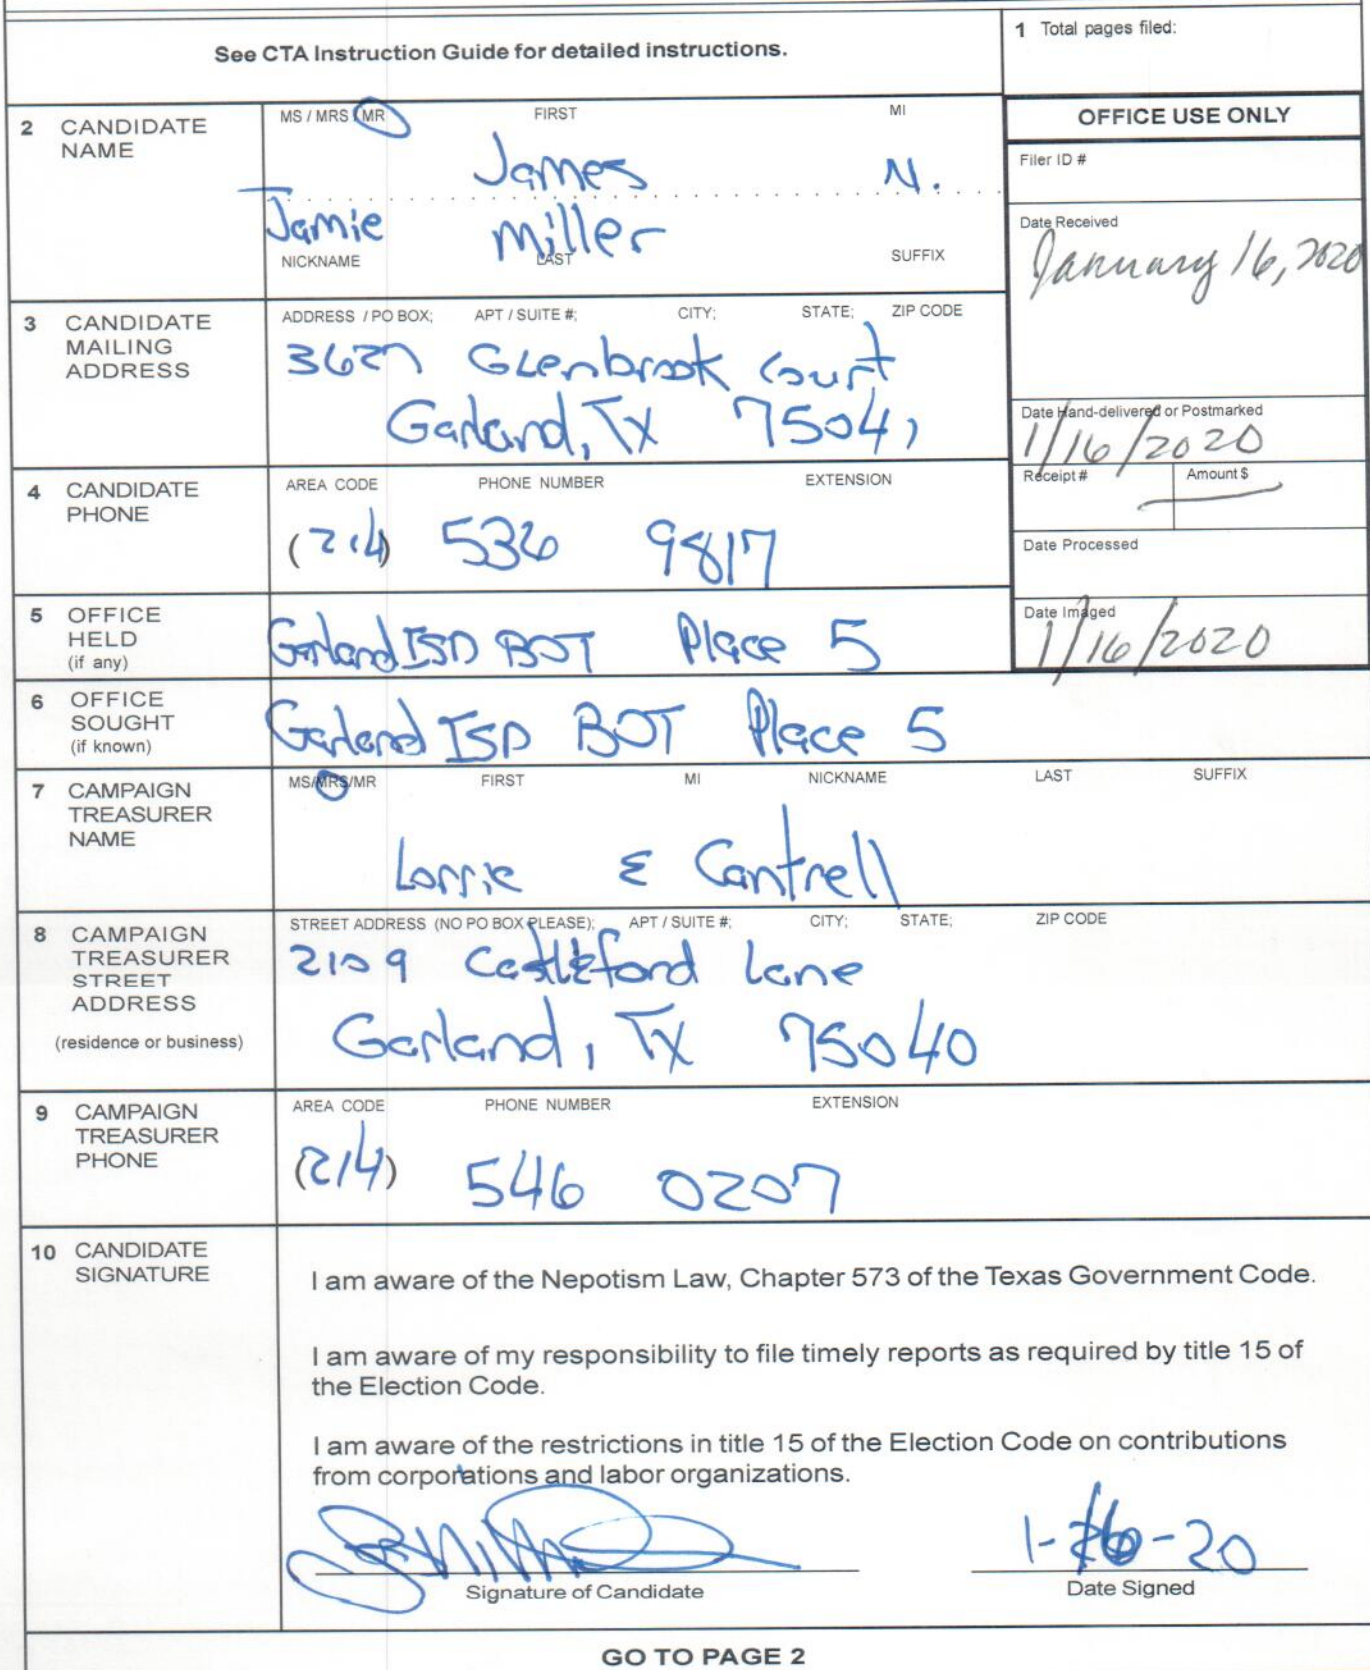 See CTA Instruction Guide for detailed instructions.
1 Total pages filed:
2 CANDIDATE NAME
MS / MRS / MR FIRST MI
James N.
Jamie Miller
NICKNAME LAST SUFFIX
OFFICE USE ONLY
Filer ID #
Date Received
January 16, 2020
3 CANDIDATE MAILING ADDRESS
ADDRESS / PO BOX; APT / SUITE #; CITY; STATE; ZIP CODE
3627 Glenbrook Court
Garland, TX 75041
Date Hand-delivered or Postmarked
1/16/2020
Receipt # Amount $
4 CANDIDATE PHONE
AREA CODE PHONE NUMBER EXTENSION
(214) 536 9817
Date Processed
Date Imaged
1/16/2020
5 OFFICE HELD (if any)
Garland ISD BOT Place 5
6 OFFICE SOUGHT (if known)
Garland ISD BOT Place 5
7 CAMPAIGN TREASURER NAME
MS/MRS/MR FIRST MI NICKNAME LAST SUFFIX
Lorrie E Cantrell
8 CAMPAIGN TREASURER STREET ADDRESS
(residence or business)
STREET ADDRESS (NO PO BOX PLEASE); APT / SUITE #; CITY; STATE; ZIP CODE
2109 Castleford Lane
Garland, TX 75040
9 CAMPAIGN TREASURER PHONE
AREA CODE PHONE NUMBER EXTENSION
(214) 546 0207
10 CANDIDATE SIGNATURE
I am aware of the Nepotism Law, Chapter 573 of the Texas Government Code.
I am aware of my responsibility to file timely reports as required by title 15 of
the Election Code.
I am aware of the restrictions in title 15 of the Election Code on contributions
from corporations and labor organizations.
1-16-20
Signature of Candidate Date Signed
GO TO PAGE 2